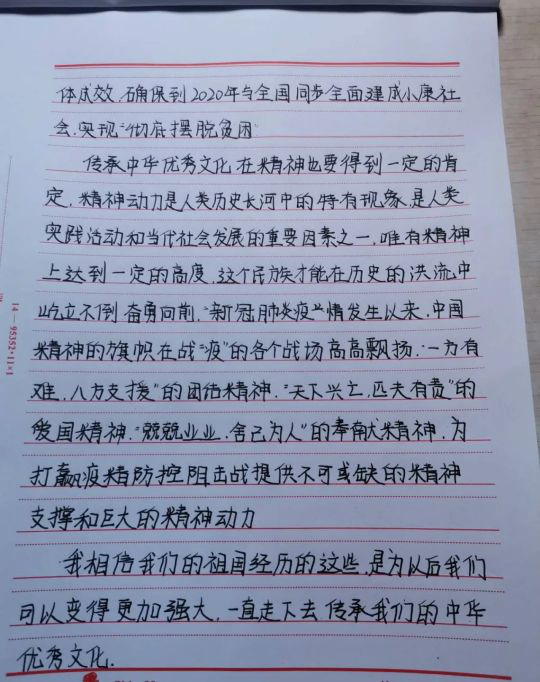 体成效,确保到2020年与全国同步全面建成小康社
会,实现“彻底摆脱贫困”
传承中华优秀文化在精神也要得到一定的肯
定,精神动力是人类历史长河中的特有现象,是人类
实践活动和当代社会发展的重要因素之一,唯有精神
上达到一定的高度,这个民族才能在历史的洪流中
屹立不倒奋勇向前,“新冠肺炎疫”情发生以来,中国
精神的旗帜在战“疫”的各个战场高高飘扬.“一方有
难,八方支援”的团结精神.“天下兴亡,匹夫有责”的
爱国精神.“兢兢业业,舍己为人”的奉献精神,为
打赢疫精防控阻击战提供不可或缺的精神
支撑和巨大的精神动力
我相信我们的祖国经历的这些,是为以后我们
可以变得更加强大,一直走下去传承我们的中华
优秀文化.
14—95352×11×1